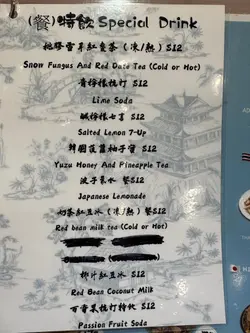 (餐)特飲 Special Drink
桃膠雪耳紅棗茶 (凍/熱) $12
Snow Fungus And Red Date Tea (Cold or Hot)
青檸梳打 $12
Lime Soda
鹹檸樂七喜 $12
Salted Lemon 7-Up
韓國菠蘿柚子蜜 $12
Yuzu Honey And Pineapple Tea
波子汽水 餐$12
Japanese Lemonade
奶茶紅豆冰 (凍/熱) 餐$12
Red bean milk tea (Cold or Hot)
椰汁紅豆冰 $12
Red Bean Coconut Milk
百香果梳打特飲 $12
Passion Fruit Soda